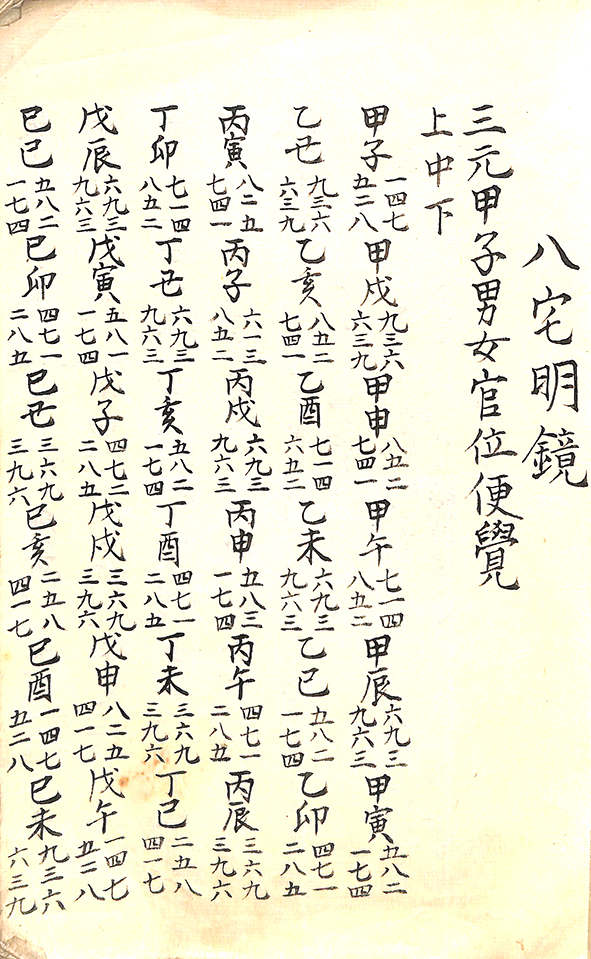 八宅明鏡
三元甲子男女官位便覺
上中下
甲子一四七五二八甲戌九三六六三九甲申八五二七四一甲午七一四八五二甲辰六九三九六三甲寅五八二一七四
乙丑九三六六三九乙亥八五二七四一乙酉七一四六五二乙未六九三九六三乙巳五八二一七四乙卯四七一二八五
丙寅八二五七四一丙子六一三八五二丙戌六九三九六三丙申五八三一七四丙午四七一二八五丙辰三六九三九六
丁卯七一四八五二丁丑六九三九六三丁亥五八二一七四丁酉四七一二八五丁未三六九三九六丁巳二五八四一七
戊辰六九三九六三戊寅五八一一七四戊子四七二二八五戊戌三六九三九六戊申八二五四一七戊午一四七五二八
巳己五八二一七四巳卯四七一二八五巳丑三六九三九六巳亥二五八四一七巳酉一四七五二八巳未九三六六三九